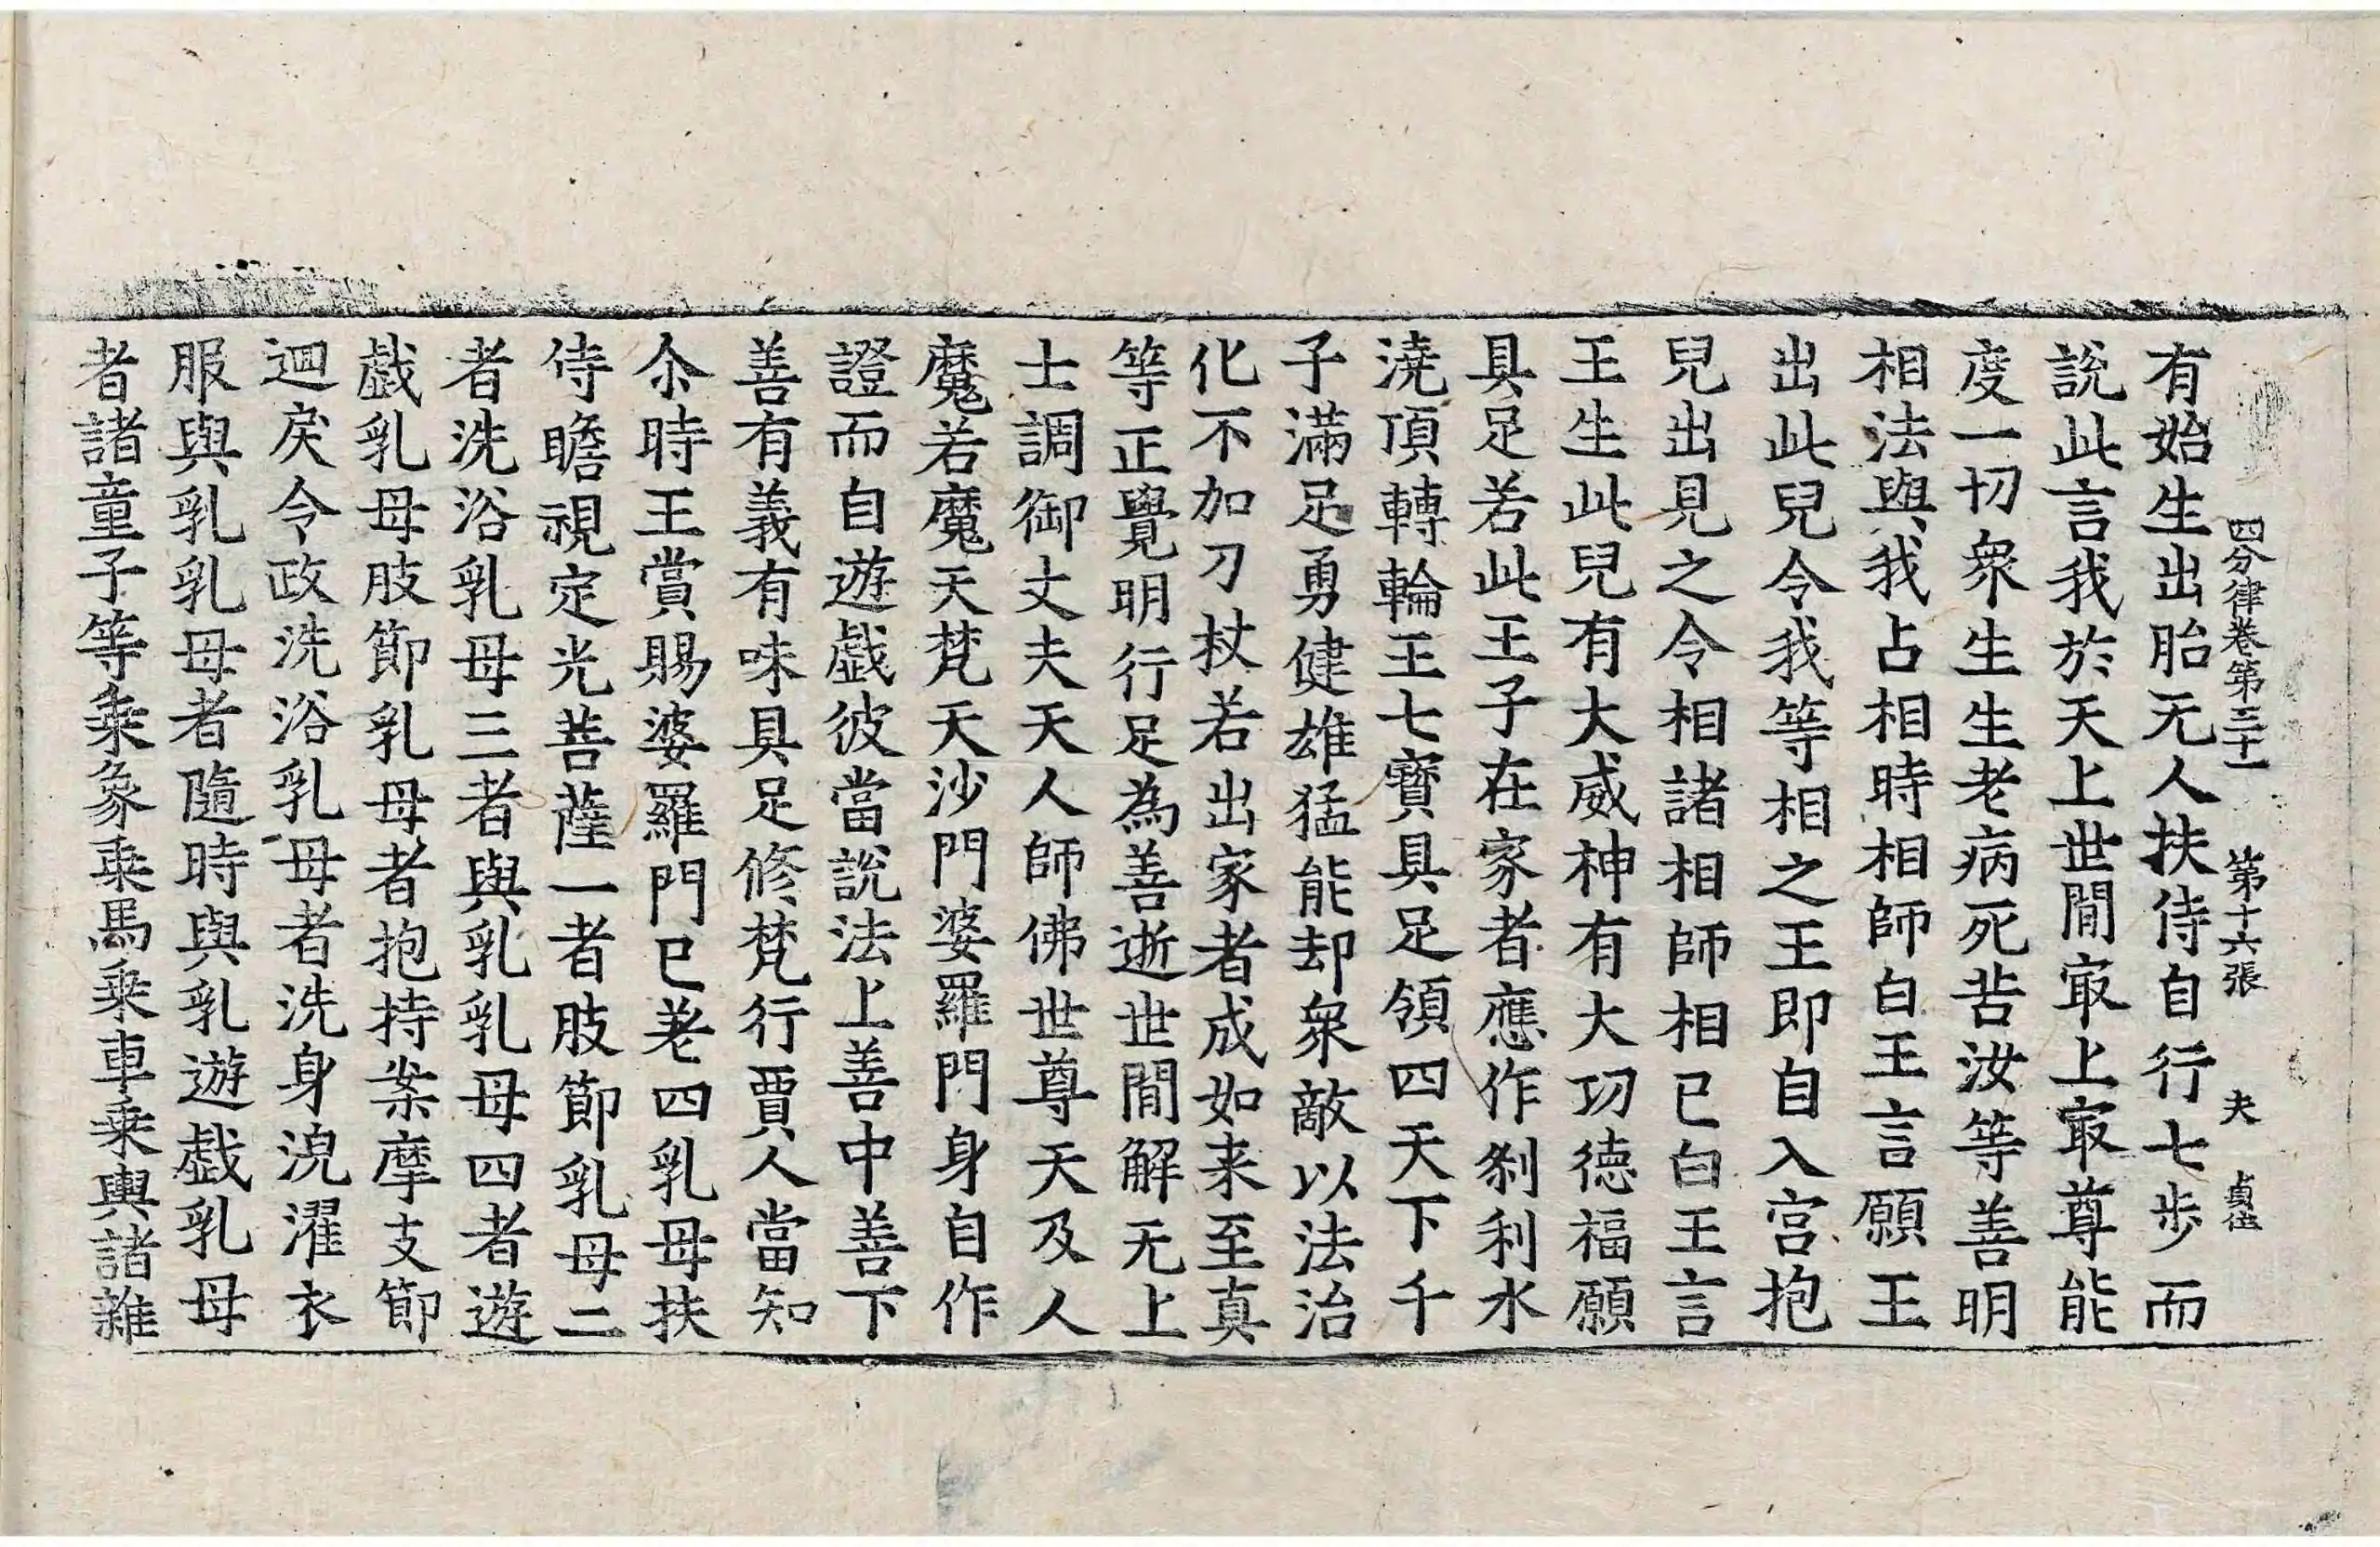 四分律卷第三十一 第十六張 夫
有始生出胎无人扶侍自行七步而
說此言我於天上世間㝡上㝡尊能
度一切衆生生老病死苦汝等善明
相法與我占相時相師白王言願王
出此兒令我等相之王即自入宮抱
兒出見之令相諸相師相已白王言
王生此兒有大威神有大功德福願
具足若此王子在家者應作刹利水
澆頂轉輪王七寶具足領四天下千
子滿足勇健雄猛能却衆敵以法治
化不加刀杖若出家者成如来至真
等正覺明行足為善逝世間解无上
士調御丈夫天人師佛世尊天及人
魔若魔天梵天沙門婆羅門身自作
證而自遊戲彼當說法上善中善下
善有義有味具足修梵行賈人當知
尒時王賞賜婆羅門已差四乳母扶
侍瞻視定光菩薩一者肢節乳母二
者洗浴乳母三者與乳乳母四者遊
戲乳母肢節乳母者抱持案摩支節
迴戾令政洗浴乳母者洗身浣濯衣
服與乳乳母者隨時與乳遊戲乳母
者諸童子等乗象乗馬乗車乗輿諸雜